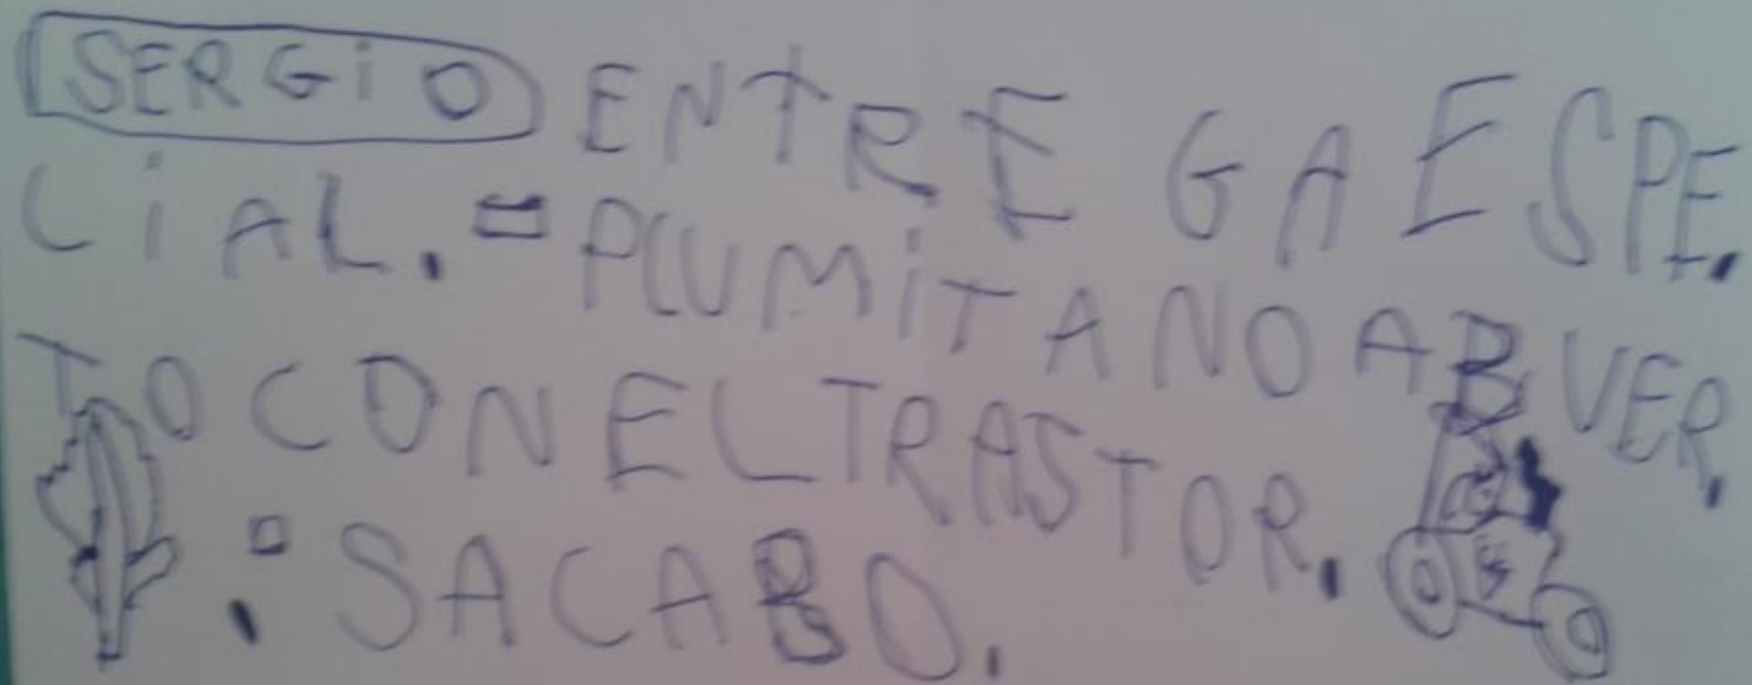 SERGiO ENTRE GA ESPE.
CiAL. = PLUMiTA NO AB VER.
TO CON EL TRASTOR.
: SACABO.